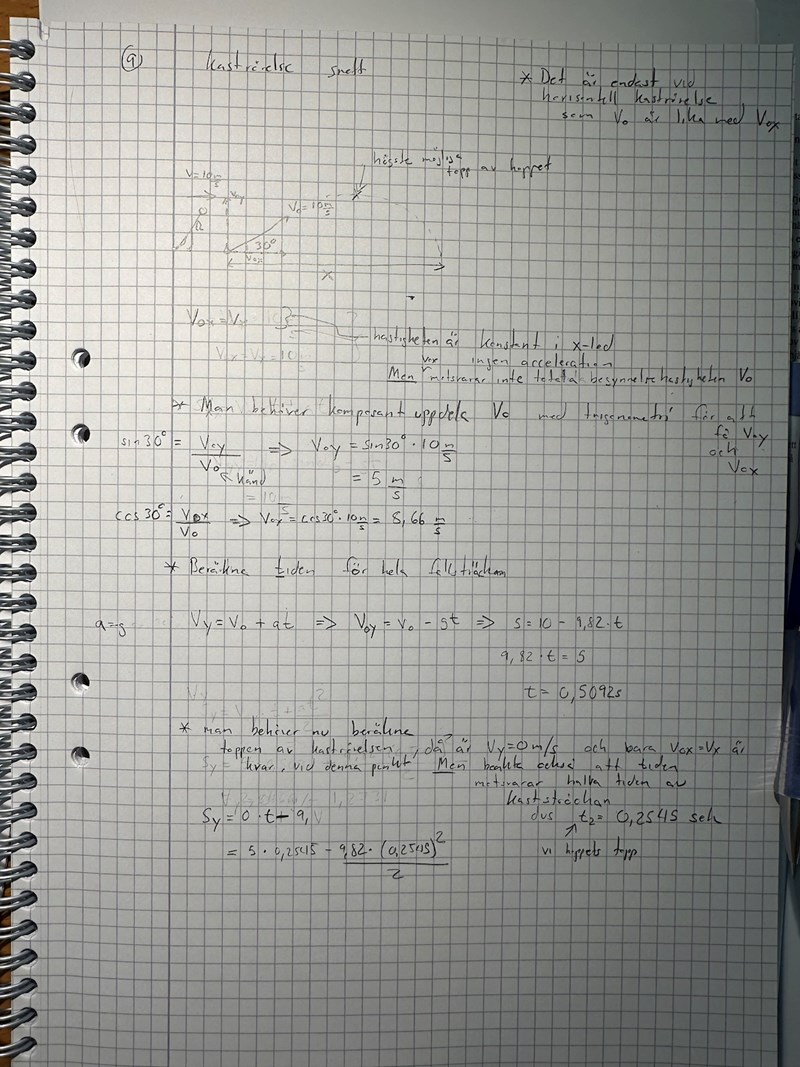 9)
Kaströrelse snett
* Det är endast vid
horisontell kaströrelse
som V₀ är lika med V₀ₓ
högsta möjliga
topp av hoppet
V=10 m/s
V₀y
V₀=10 m/s
30°
V₀ₓ
x
V₀ₓ=Vₓ
hastigheten är konstant i x-led
V₀ₓ ingen acceleration
Men motsvarar inte totala begynnelsehastigheten V₀
* Man behöver komposant uppdela V₀ med trigonometri för att
få V₀y
och
V₀ₓ
sin30° = V₀y/V₀ => V₀y = sin30° · 10 m/s
känd
= 10 m/s
= 5 m/s
cos30° = V₀ₓ/V₀ => V₀ₓ = cos30° · 10 m/s = 8,66 m/s
* Beräkna tiden för hela fallsträckan
a=-g
Vy = V₀ + at => V₀y = V₀ - gt => 5 = 10 - 9,82 · t
9,82 · t = 5
t = 0,5092s
* man behöver nu beräkna
toppen av kaströrelsen, då är Vy=0 m/s och bara V₀ₓ=Vₓ är
kvar, vid denna punkt. Men beakta också att tiden
motsvarar halva tiden av
kaststräckan
dvs t₂ = 0,2545 sek
Sy = 0 · t - 9,
= 5 · 0,2545 - 9,82 · (0,2545)²/2
vi hoppets topp